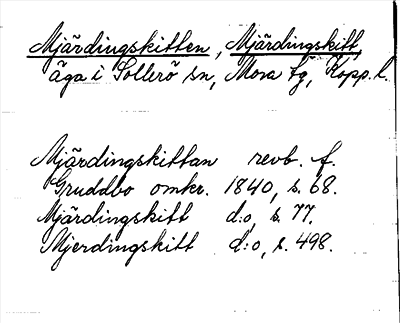 Mjärdingskitten, Mjärdingskitt,
äga i Sollerö sn, Mora tg, Kopp. l.
Mjärdingskittan revb. f.
Gruddbo omkr. 1840, s. 68.
Mjärdingskitt d:o, s. 77.
Mjerdingskitt d:o, s. 498.